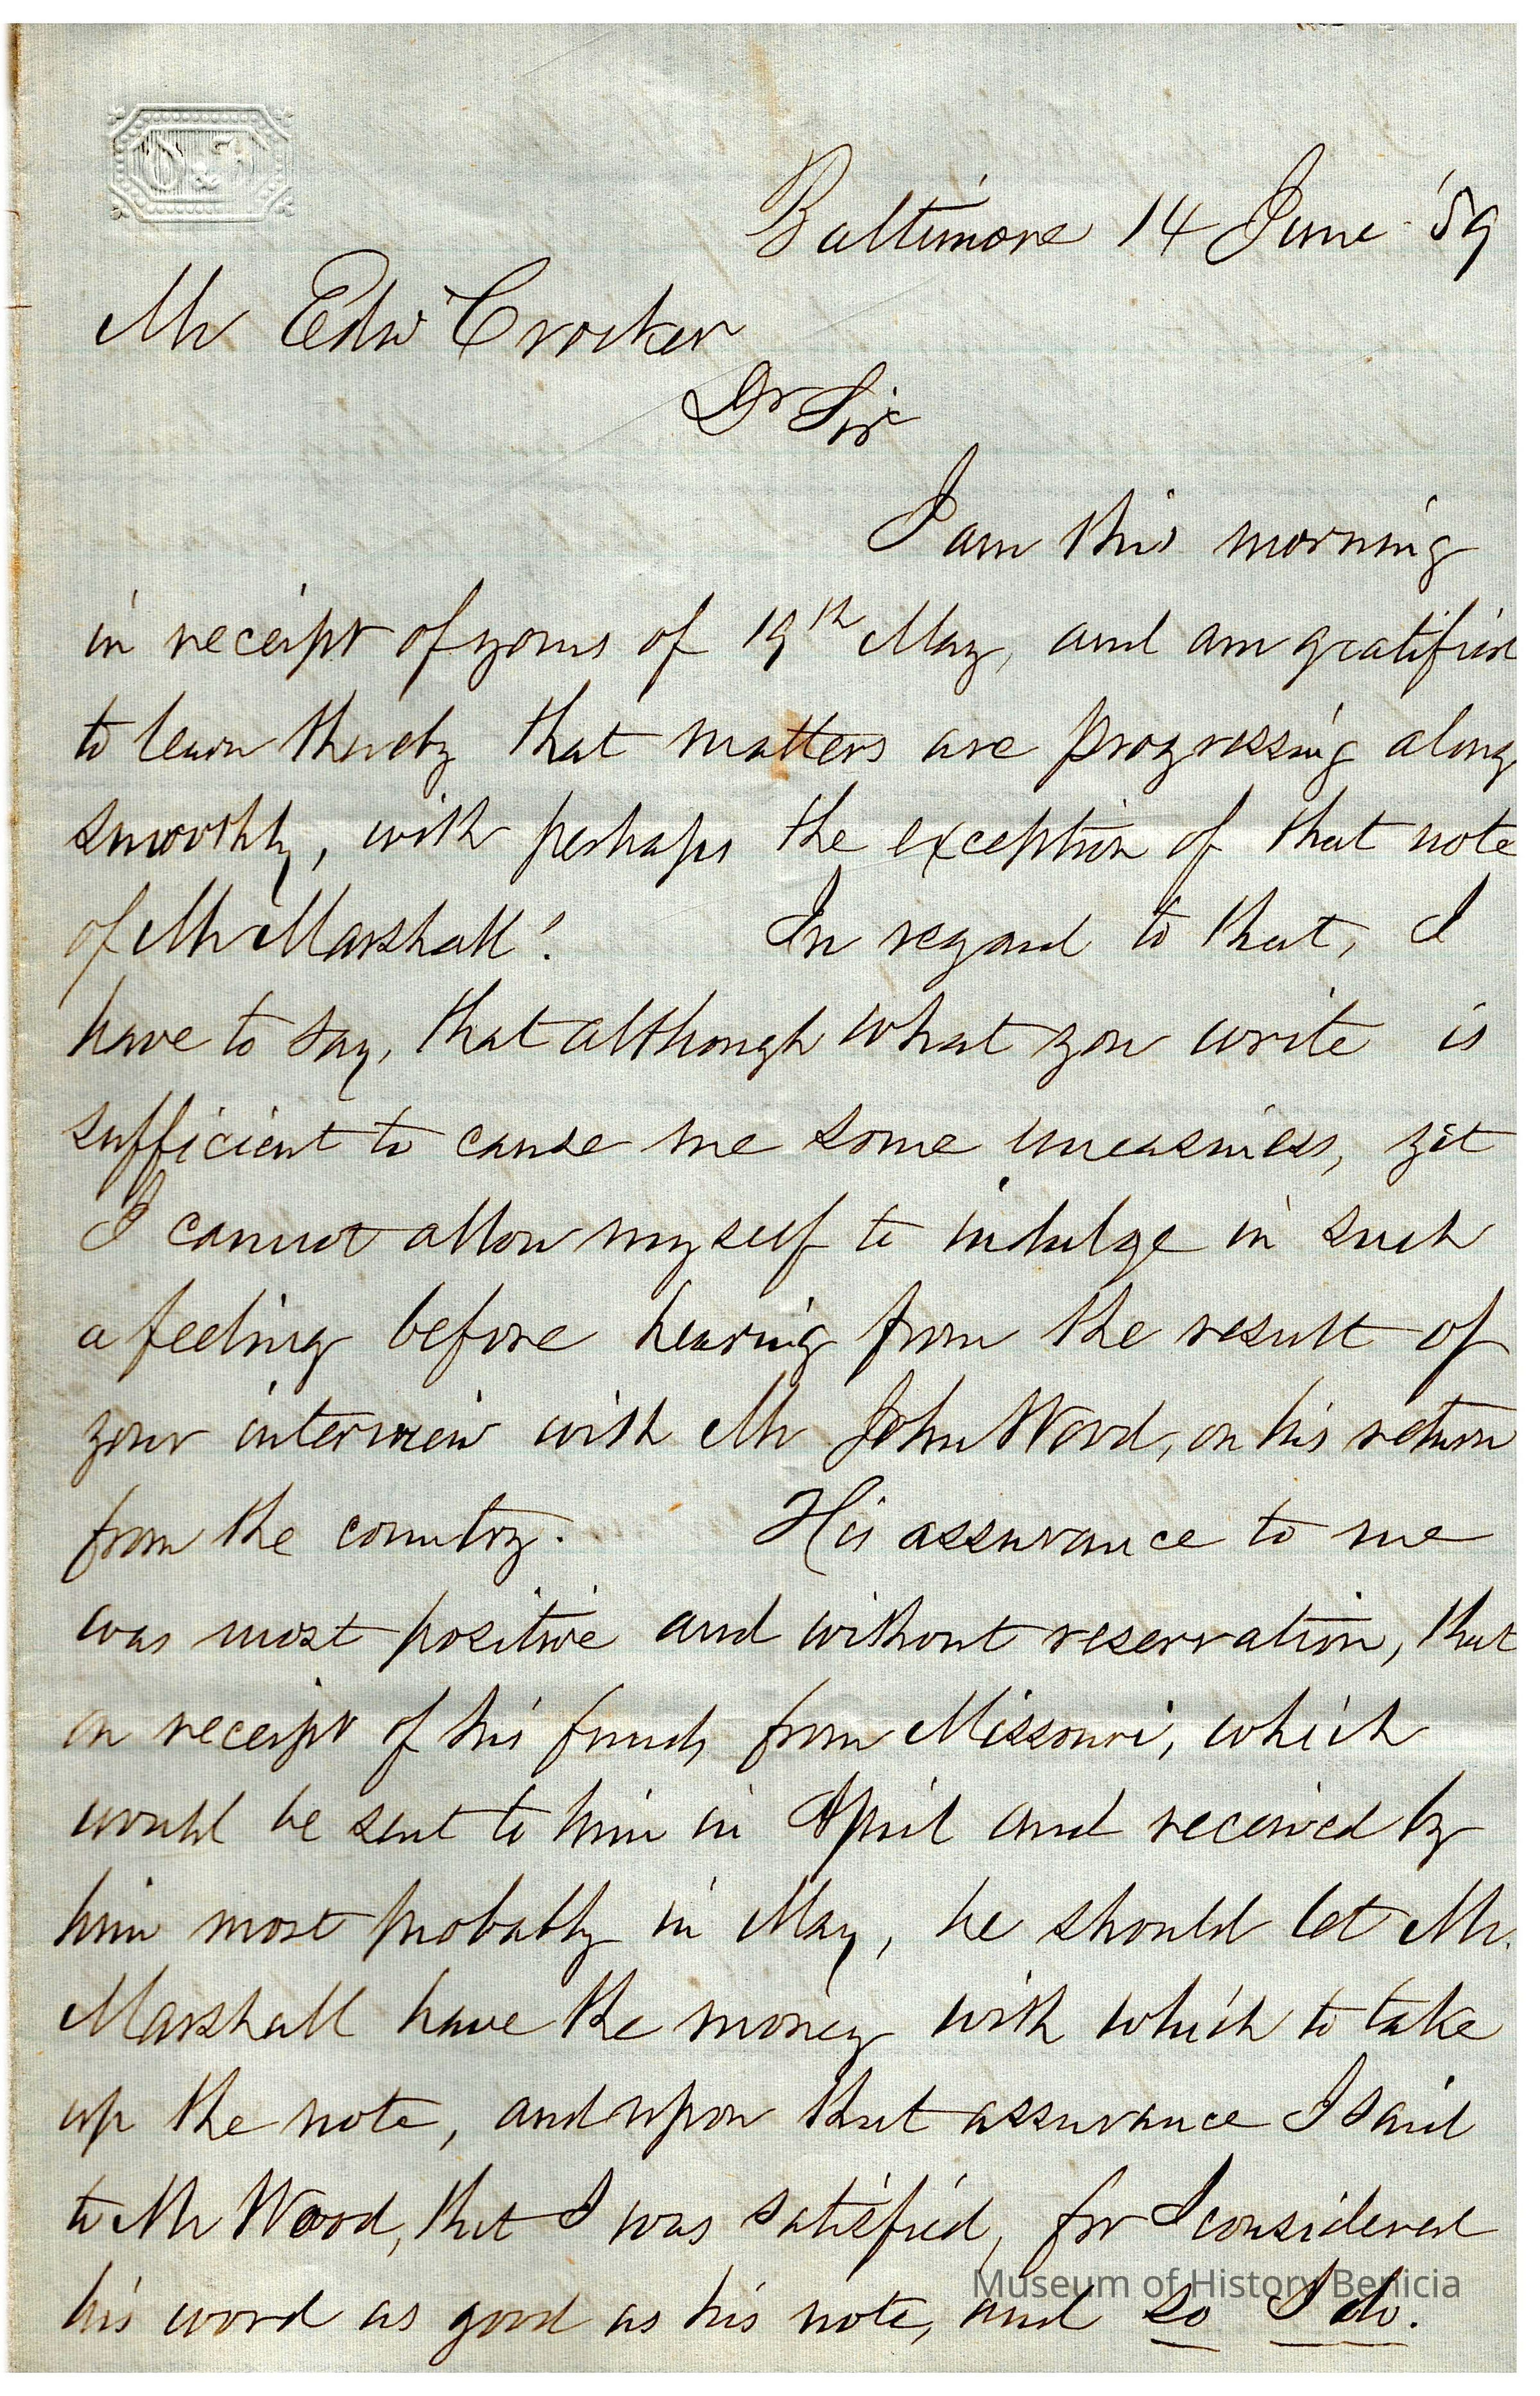 O & H
Baltimore 14 June '59
Mr Edw Crocker
Dr Sir
I am this morning
in receipt of yours of 19th May, and am gratified
to learn thereby that matters are progressing along
smoothly, with perhaps the exception of that note
of Mr Marshall! In regard to that, I
have to say, that although what you write is
sufficient to cause me some uneasiness, yet
I cannot allow myself to indulge in such
a feeling before hearing from the result of
your interview with Mr John Wood, on his return
from the country. His assurance to me
was most positive and without reservation, that
on receipt of his funds from Missouri, which
would be sent to him in April and received by
him most probably in May, he should let Mr.
Marshall have the money with which to take
up the note, and upon that assurance I said
to Mr Wood, that I was satisfied, for I considered
his word as good as his note, and so I do.
Museum of History Benicia